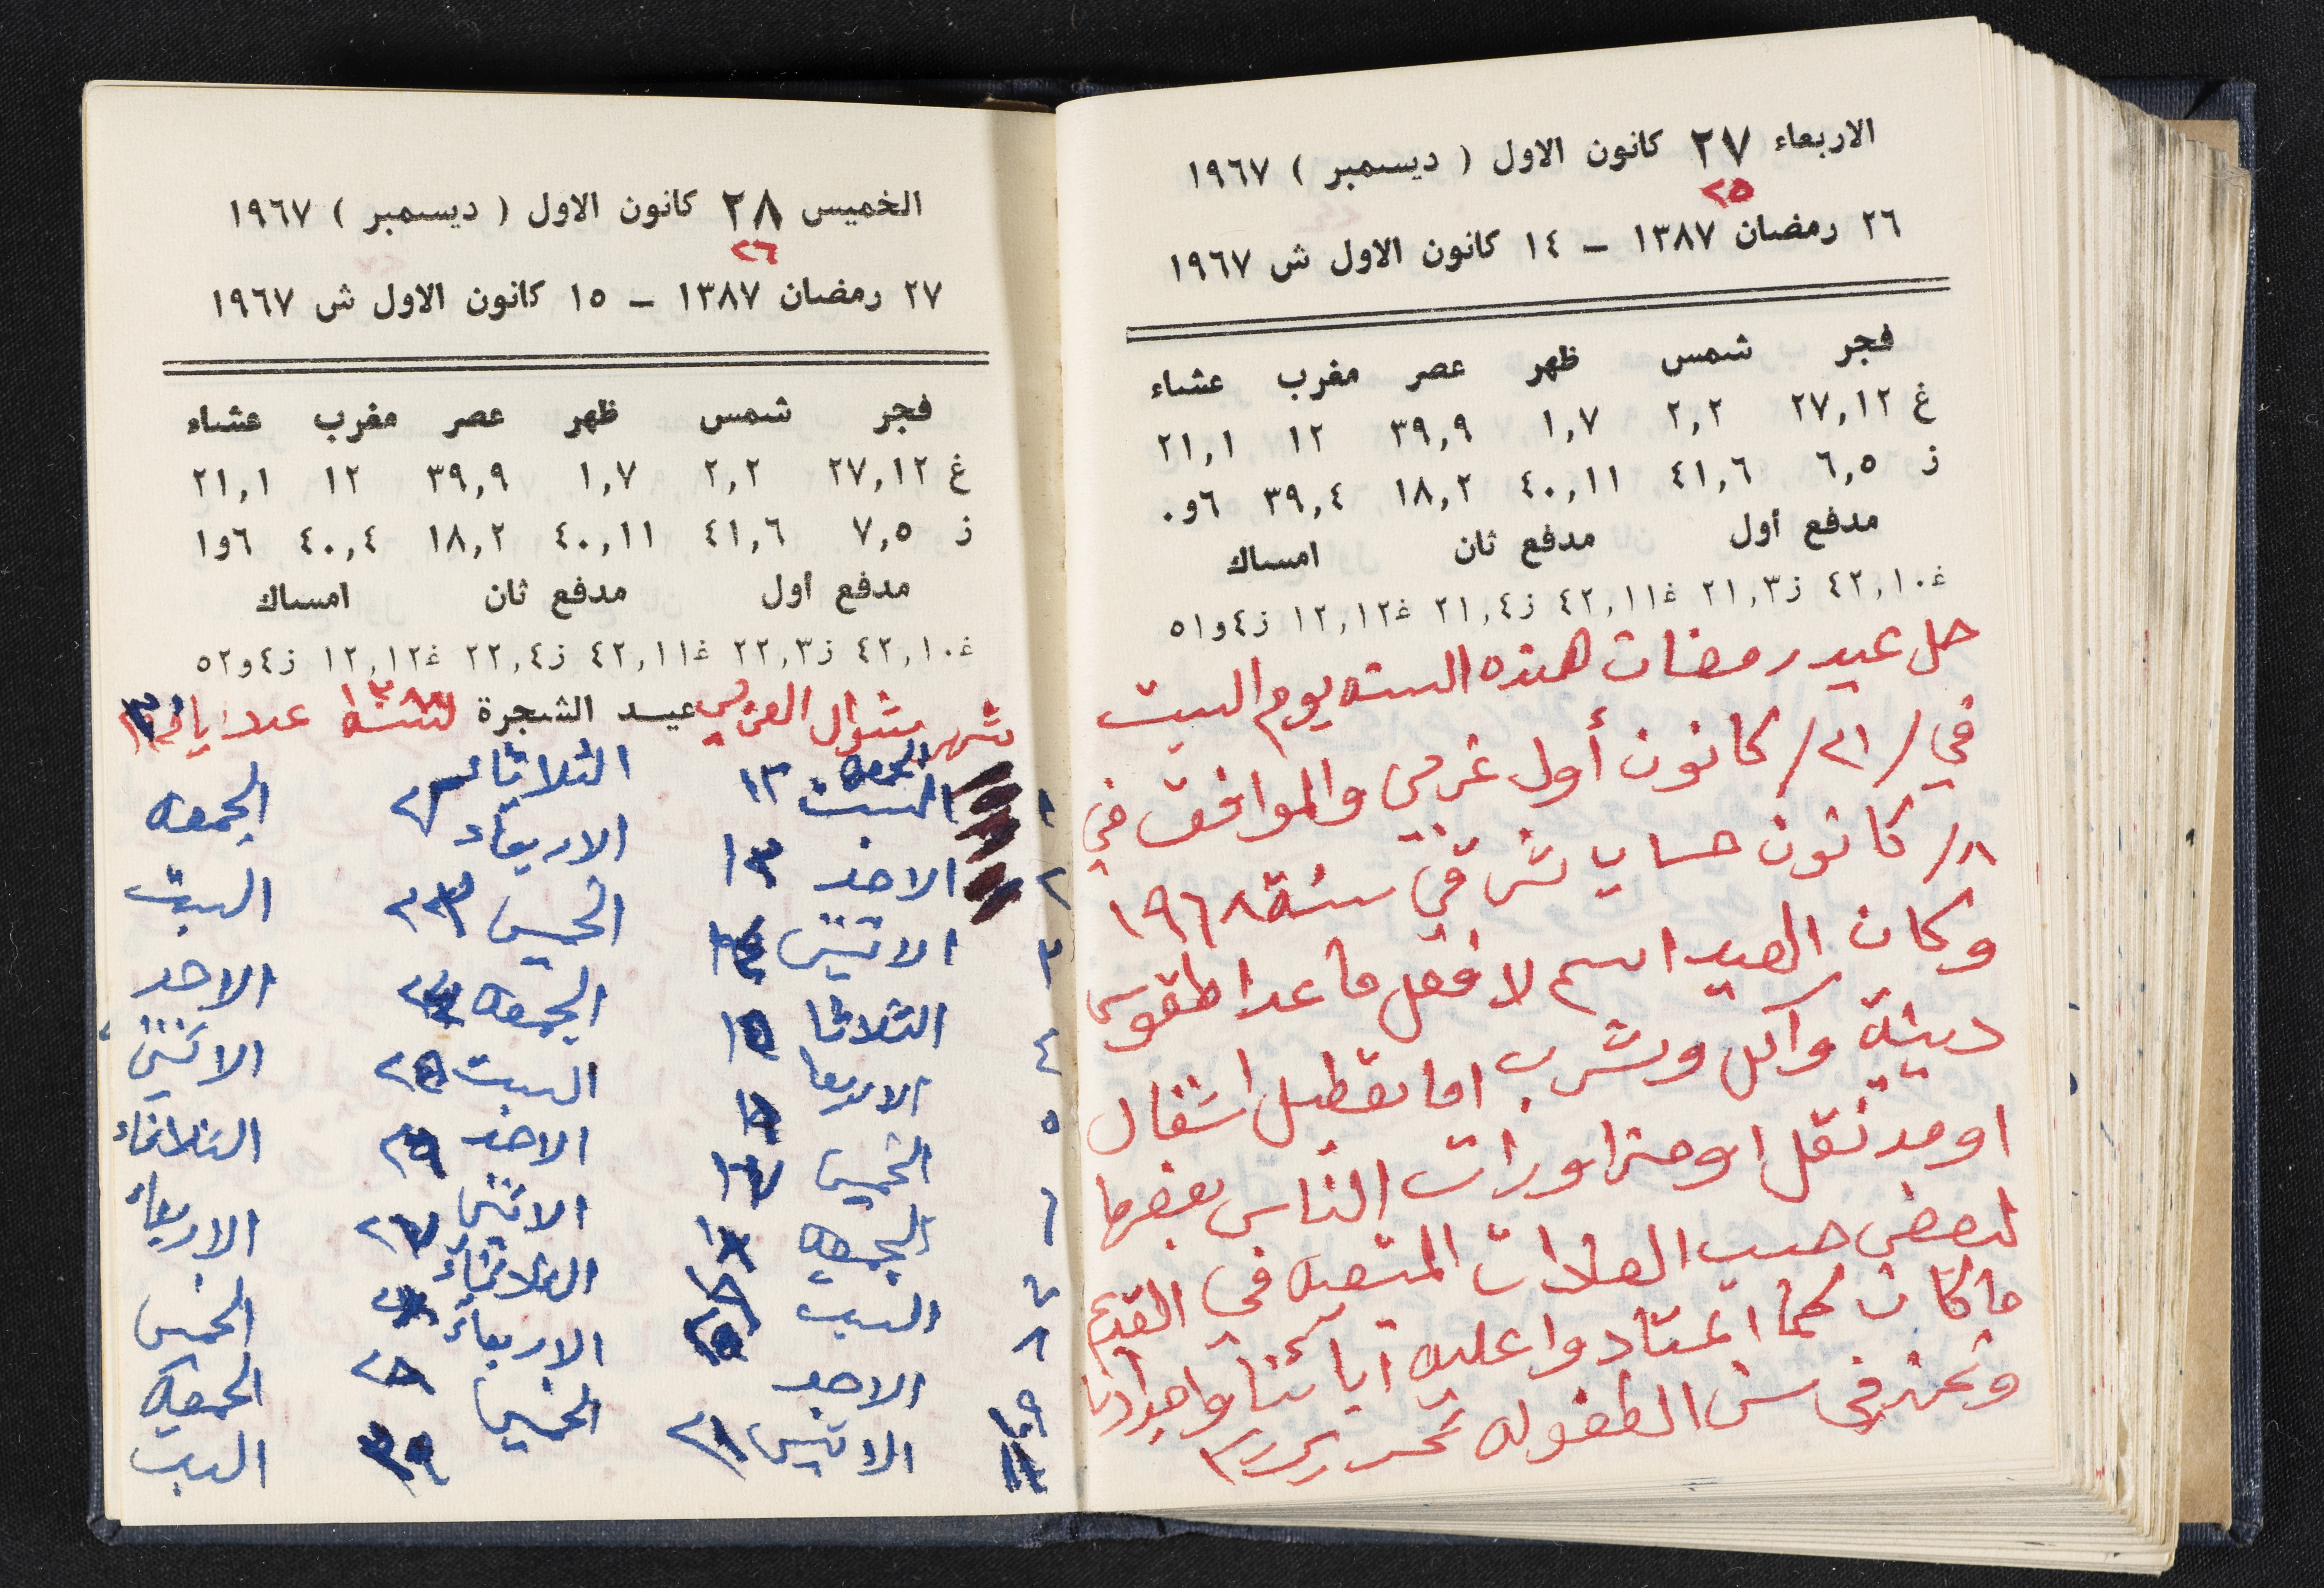 الاربعاء ٢٧ كانون الاول ( ديسمبر ) ١٩٦٧
٢٥
٢٦ رمضان ١٣٨٧ – ١٤ كانون الاول ش ١٩٦٧
فجر شمس ظهر عصر مغرب عشاء
غ ٢٧,١٢ ٢,٢ ١,٧ ٣٩,٩ ١٢ ٢١,١
ز ٦,٥ ٤١,٦ ٤٠,١١ ١٨,٢ ٣٩,٤ ٦و٠
مدفع أول مدفع ثان امساك
غ٤٢,١٠ ز٢١,٣ غ٤٢,١١ ز٢١,٤ غ١٢,١٢ ز٤و٥١
حل عيد رمضان هذه السنه يوم السبت
في /٢١/ كانون أول غربي والموافق في
/٨ كانون حساب شرقي سنة ١٩٦٨
وكان العيد اسم لا فعل ما عدا طقوس
دينية وآكل وشرب اما تعطيل اشغال
او مد نقل او متزاورات الناس بعضها
لبعض حسب العادات المتبعه في القديم
ما كان كما اعتادوا عليه آبائنا واجدادنا
ونحن في سن الطفوله تحرير
الخميس ٢٨ كانون الاول ( ديسمبر ) ١٩٦٧
٢٦
٢٧ رمضان ١٣٨٧ – ١٥ كانون الاول ش ١٩٦٧
فجر شمس ظهر عصر مغرب عشاء
غ ٢٧,١٢ ٢,٢ ١,٧ ٣٩,٩ ١٢ ٢١,١
ز ٧,٥ ٤١,٦ ٤٠,١١ ١٨,٢ ٤٠,٤ ٦و١
مدفع اول مدفع ثان امساك
غ٤٢,١٠ ز٢٢,٣ غ٤٢,١١ ز٢٢,٤ غ١٢,١٢ ز٤و٥٢
شهر شوال العربي عيد الشجرة
الجمعه
١ السبت ١٢ الثلاثاء الجمعه
٢ الاحد ١٣ الاربعاء السبت
٣ الاثنين الخميس ٢٣ الاحد
٤ الثلاثا ١٥ الجمعه الاثنين
٥ الاربعا السبت ٢٥ الثلاثاء
٦ الخميس ١٧ الاحد الاربعاء
٧ الجمعه الاثنين ٢٧ الخميس
٨ السبت الثلاثاء الجمعه
الاحد الاربعاء السبت
الاثنين ٢١ الخميس